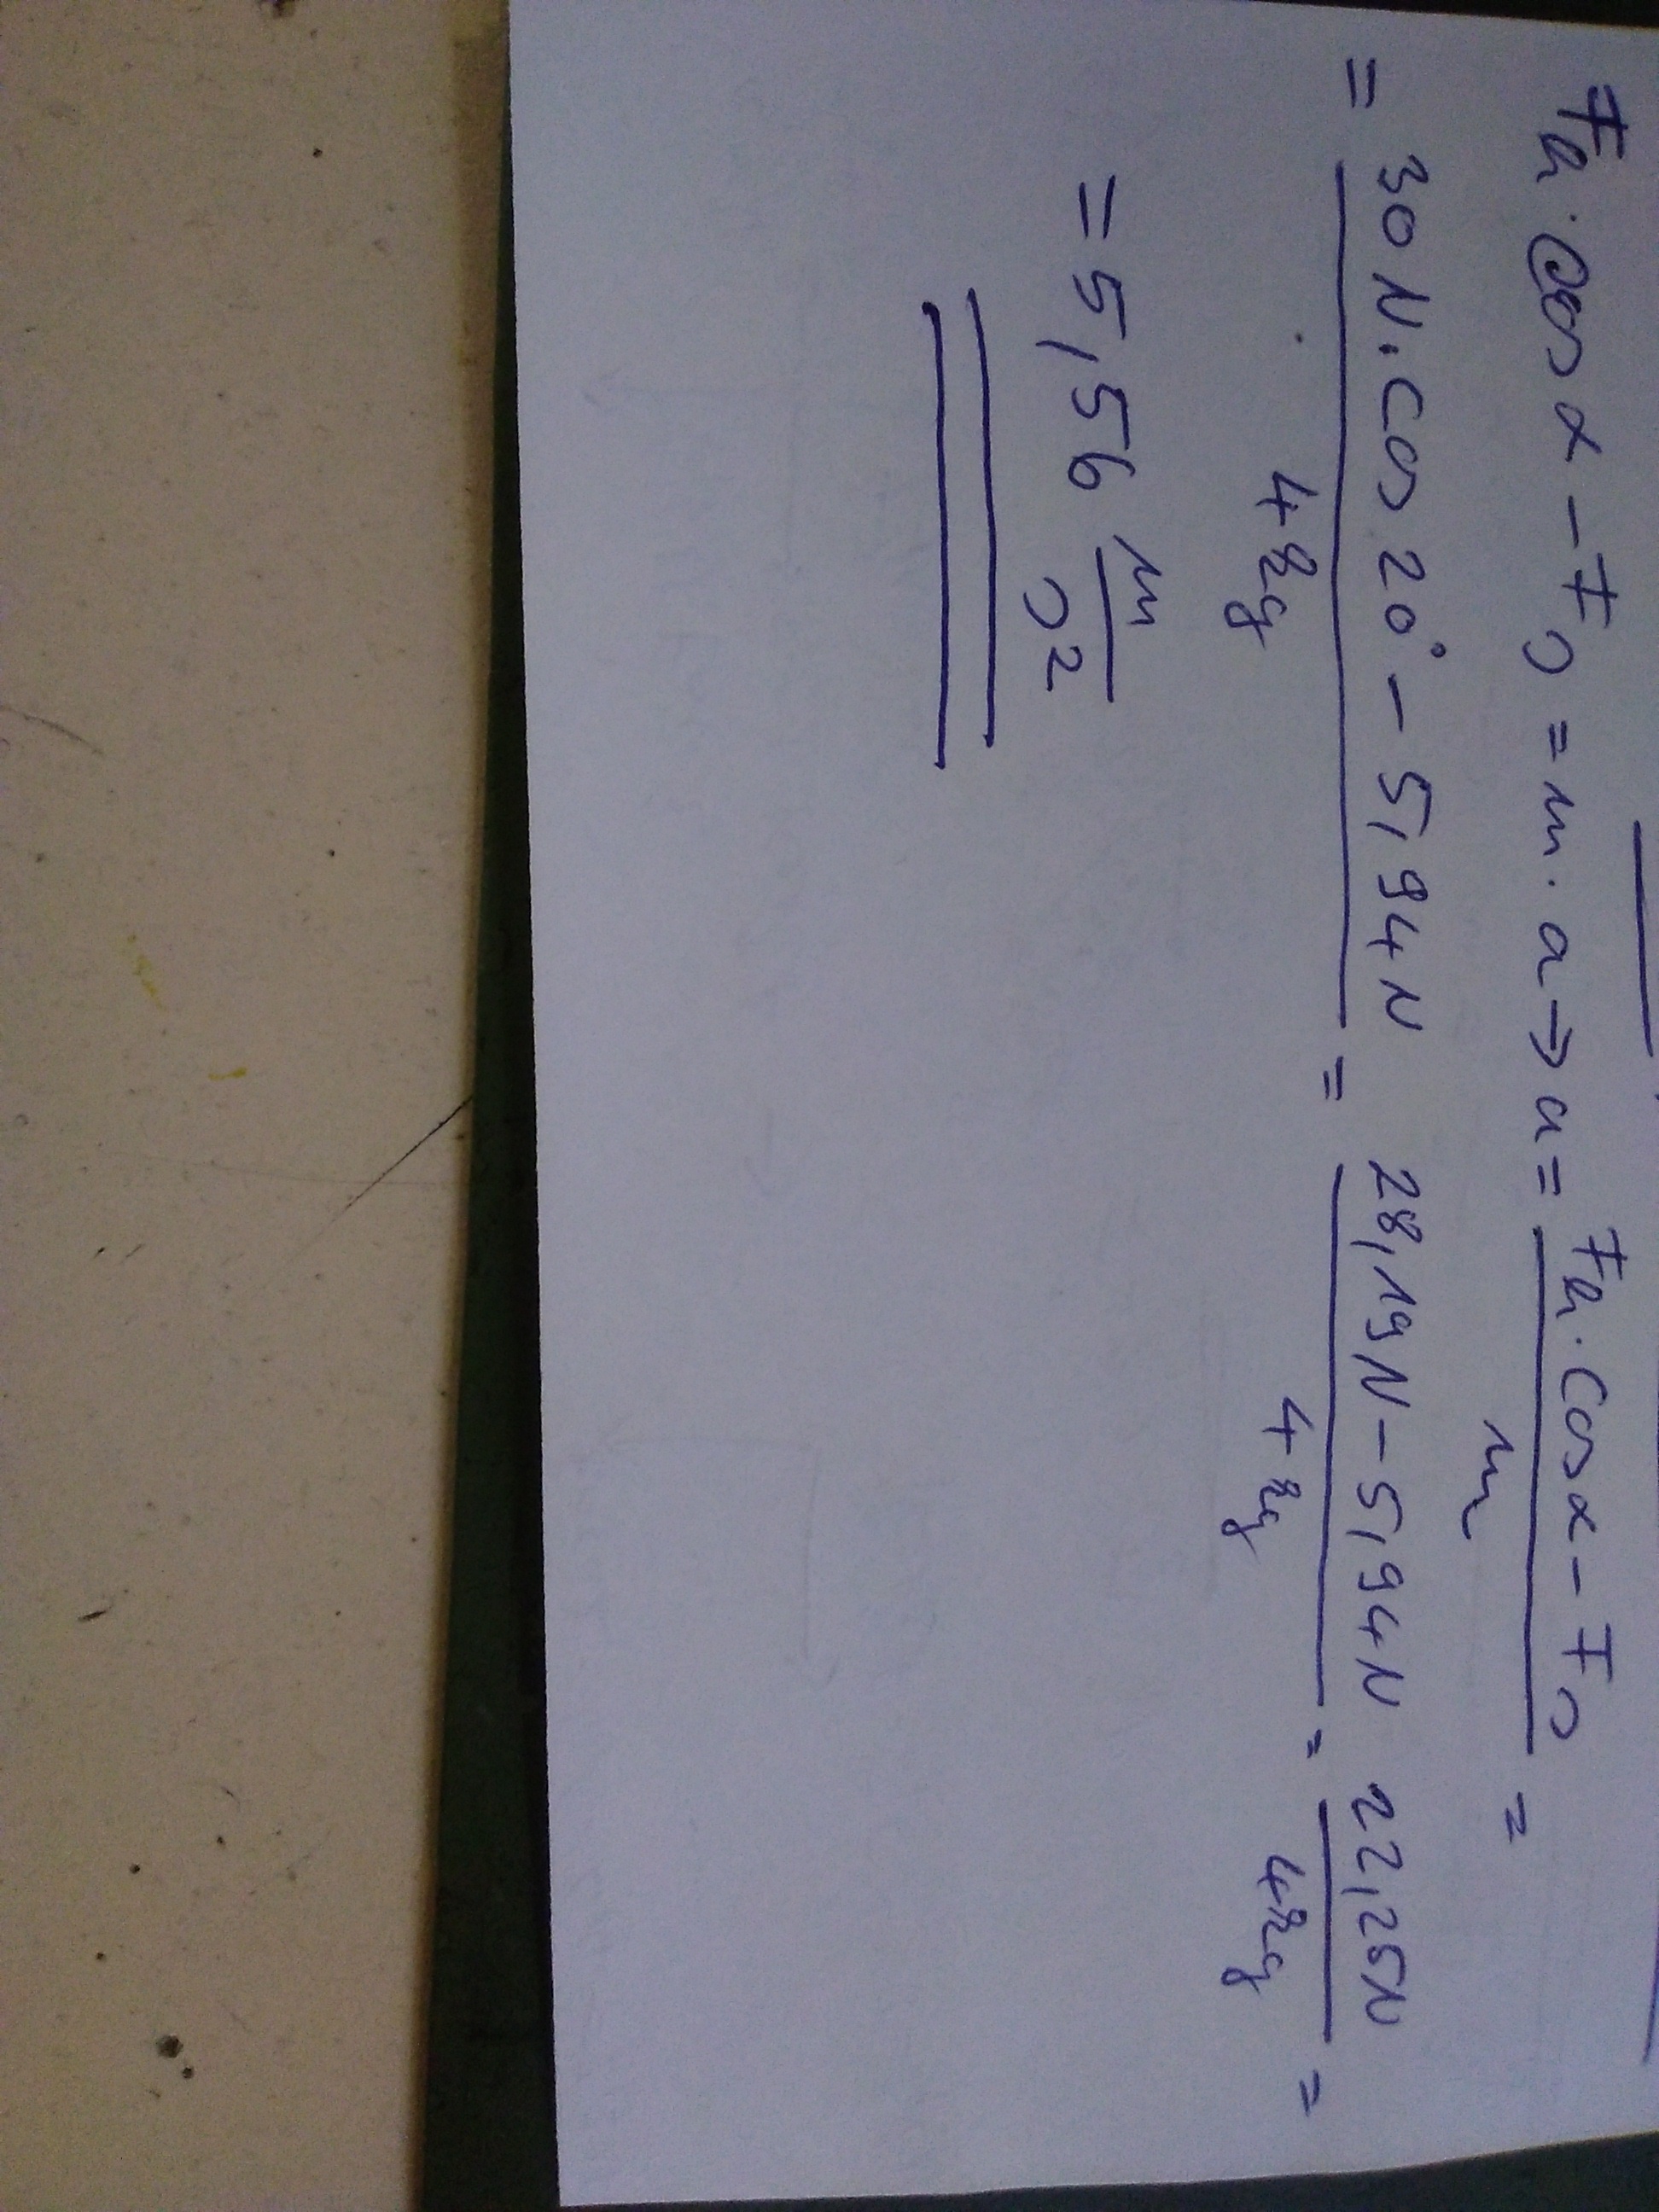 Fk · cos α - Fs = m · a → a = (Fk · cos α - Fs) / m =
= (30 N · cos 20° - 5,94 N) / 4 kg = (28,19 N - 5,94 N) / 4 kg = 22,25 N / 4 kg =
= 5,56 m / s²